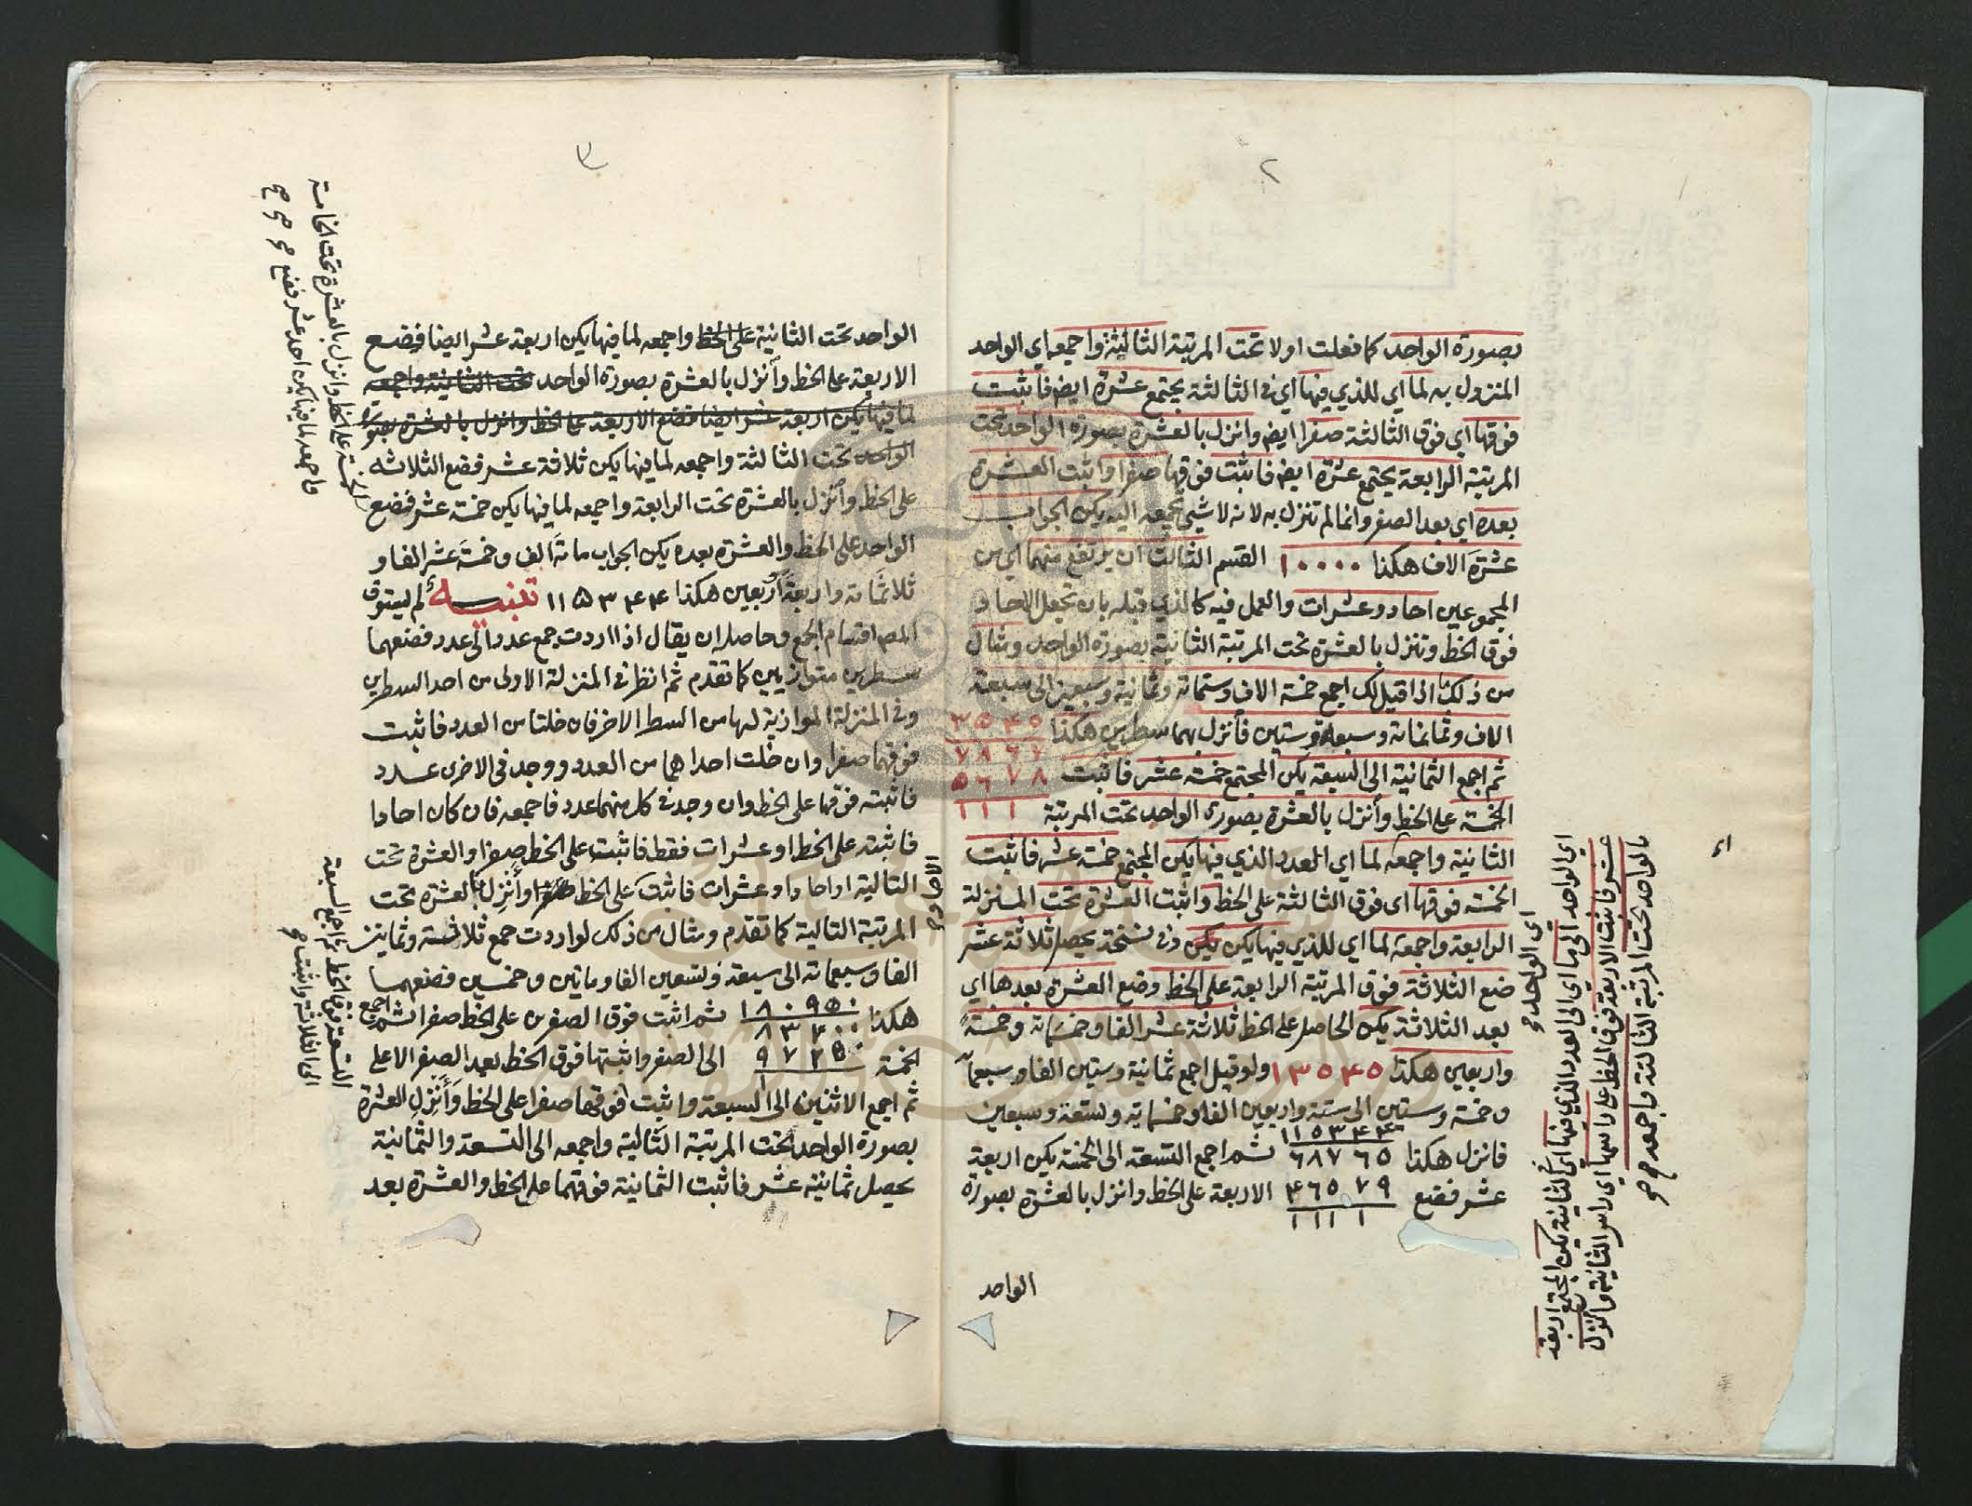 ٢
بصورة الواحد كما فعلت اولا تحت المرتبة الثالثة واجمعه اي الواحد
المنزول به لما اي للذي فيها اي في الثالثة يجتمع عشرة ايض فاثبت
فوقها اي فوق الثالثة صفرا ايض وانزل بالعشرة بصورة الواحد تحت
المرتبة الرابعة يجتمع عشرة ايض فاثبت فوقها صفرا واثبت العشرة
بعده اي بعد الصفر وانما لم تنزل به لانه لا شيء تجمعه اليه يكن الجواب
عشرة الاف هكذا ١٠٠٠٠ القسم الثالث ان يرتفع منهما اي من
المجموعين احاد وعشرات والعمل فيه كالذي قبله بان تجعل الاحاد
فوق الخط وتنزل بالعشرة تحت المرتبة الثانية بصورة الواحد ومثال
من ذلك اذا قيل لك اجمع خمسة الاف وستماتة وثمانية وسبعين الى سبعة
الاف وثمانماتة وسبعة وستين فأنزل بهما سطرين هكذا ٣٥٤٥
٧٨٦٧
ثم اجمع الثمانية الى السبعة يكن المجتمع خمسة عشر فاثبت ٥٦٧٨
الخمسة على الخط وأنزل بالعشرة بصورة الواحد تحت المرتبة ١١١
الثانية واجمعه لما اي العدد الذي فيها يكن المجتمع خمسة عشر فاثبت
الخمسة فوقها اى فوق الثالثة على الخط واثبت العشرة تحت المنزلة
الرابعة واجمعه لما اي للذي فيها يكن يكن وفي نسخة يحصل ثلاثة عشر
ضع الثلاثة فوق المرتبة الرابعة على الخط وضع العشرة بعدها اي
بعد الثلاثة يكن الحاصل على الخط ثلاثة عشر الفا وخمسماتة وخمسة
واربعين هكذا ١٣٥٤٥ ولو قيل اجمع ثمانية وستين الفا وسبعماتة
وخمسة وستين الى ستة واربعين الفا وخمسماية وتسعة وسبعين
١١٥٣٤٤
فانزل هكذا ٦٨٧٦٥ ثم اجمع التسعة الى الخمسة يكن اربعة
عشر فضع ٤٦٥٧٩ الاربعة على الخط وانزل بالعشرة بصورة
١١١١
الواحد
اي الواحد
اي الواحد الى ما اي الى العدد الذي فيها اي الثانية يكن المجتمع اربعة
عشر فاثبت الاربعة فوق الخط على راسها اي راس الثانية وانزل
بالواحد تحت المرتبة الثالثة واجمعه صح
٣
الواحد تحت الثانية على الخط واجمعه لما فيها يكن اربعة عشر ايضا فضع
الاربعة على الخط وأنزل بالعشرة بصورة الواحد تحت الثانية واجمعه
لما فيها يكن اربعة عشر ايضا فضع الاربعة على الخط وانزل بالعشرة بصورة
الواحد تحت الثالثة واجمعه لما فيها يكن ثلاثة عشر فضع الثلاثه
على الخط وأنزل بالعشرة تحت الرابعة واجمعه لما فيها يكن خمسة عشر فضع
الواحد على الخط والعشرة بعده يكن الجواب ماتة الف وخمسة عشر الفا و
ثلاثماتة واربعة وأربعين هكذا ١١٥٣٤٤ تنبيه لم يستوف
المص اقسام الجمع وحاصله ان يقال اذا اردت جمع عدد الى عدد فضعهما
سطرين متوازيين كما تقدم ثم انظر في المنزلة الاولى من احد السطرين
وفي المنزلة الموازية لها من السطر الاخر فان خلتا من العدد فاثبت
فوقهما صفرا وان خلت احداهما من العدد ووجد في الاخرى عدد
فاثبته فوقها على الخط وان وجد في كل منهما عدد فاجمعه فان كان احادا
فاثبته على الخط او عشرات فقط فاثبت على الخط صفرا والعشرة تحت
التالية او احادا وعشرات فاثبت على الخط وأنزل بالعشرة تحت
المرتبة التالية كما تقدم ومثال من ذلك لو اردت جمع ثلاثة وثمانين
الفا وسبعماتة الى سبعة وتسعين الفا وماتين وخمسين فضعهما
هكذا ١٨٠٩٥٠ ثم اثبت فوق الصفرين على الخط صفرا ثم اجمع
٨٣٧٠٠
الخمسة ٩٧٢٥٠ الى الصفر واثبتها فوق الخط بعد الصفر الاعلى
ثم اجمع الاثنين الى السبعة واثبت فوقها صفرا على الخط وأنزل العشرة
بصورة الواحد تحت المرتبة التالية واجمعه الى التسعة والثمانية
يحصل ثمانية عشر فاثبت الثمانية فوقهما على الخط والعشرة بعد
الخمسة على الخط وانزل بالعشرة تحت الخامسة
واجمعه لما فيها يكن احد عشر فضع صح
الاحاد
التسعة فوق الخط ثم اجمع السبعة
الى الثلاثة واثبت